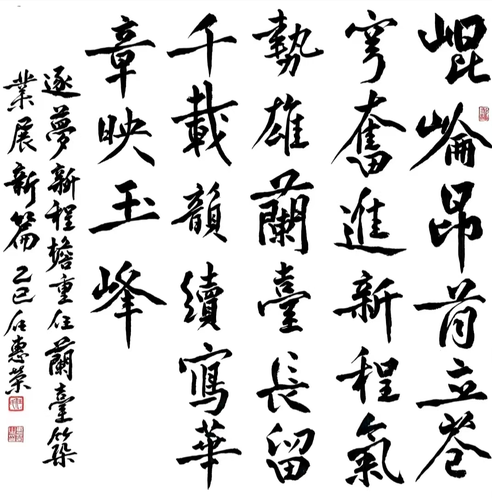 崐崘昂首立蒼
穹奮進新程氣
勢雄蘭臺長留
千載韻續寫華
章映玉峰
逐夢新程擔重任蘭臺築
業展新篇 乙巳 惠榮